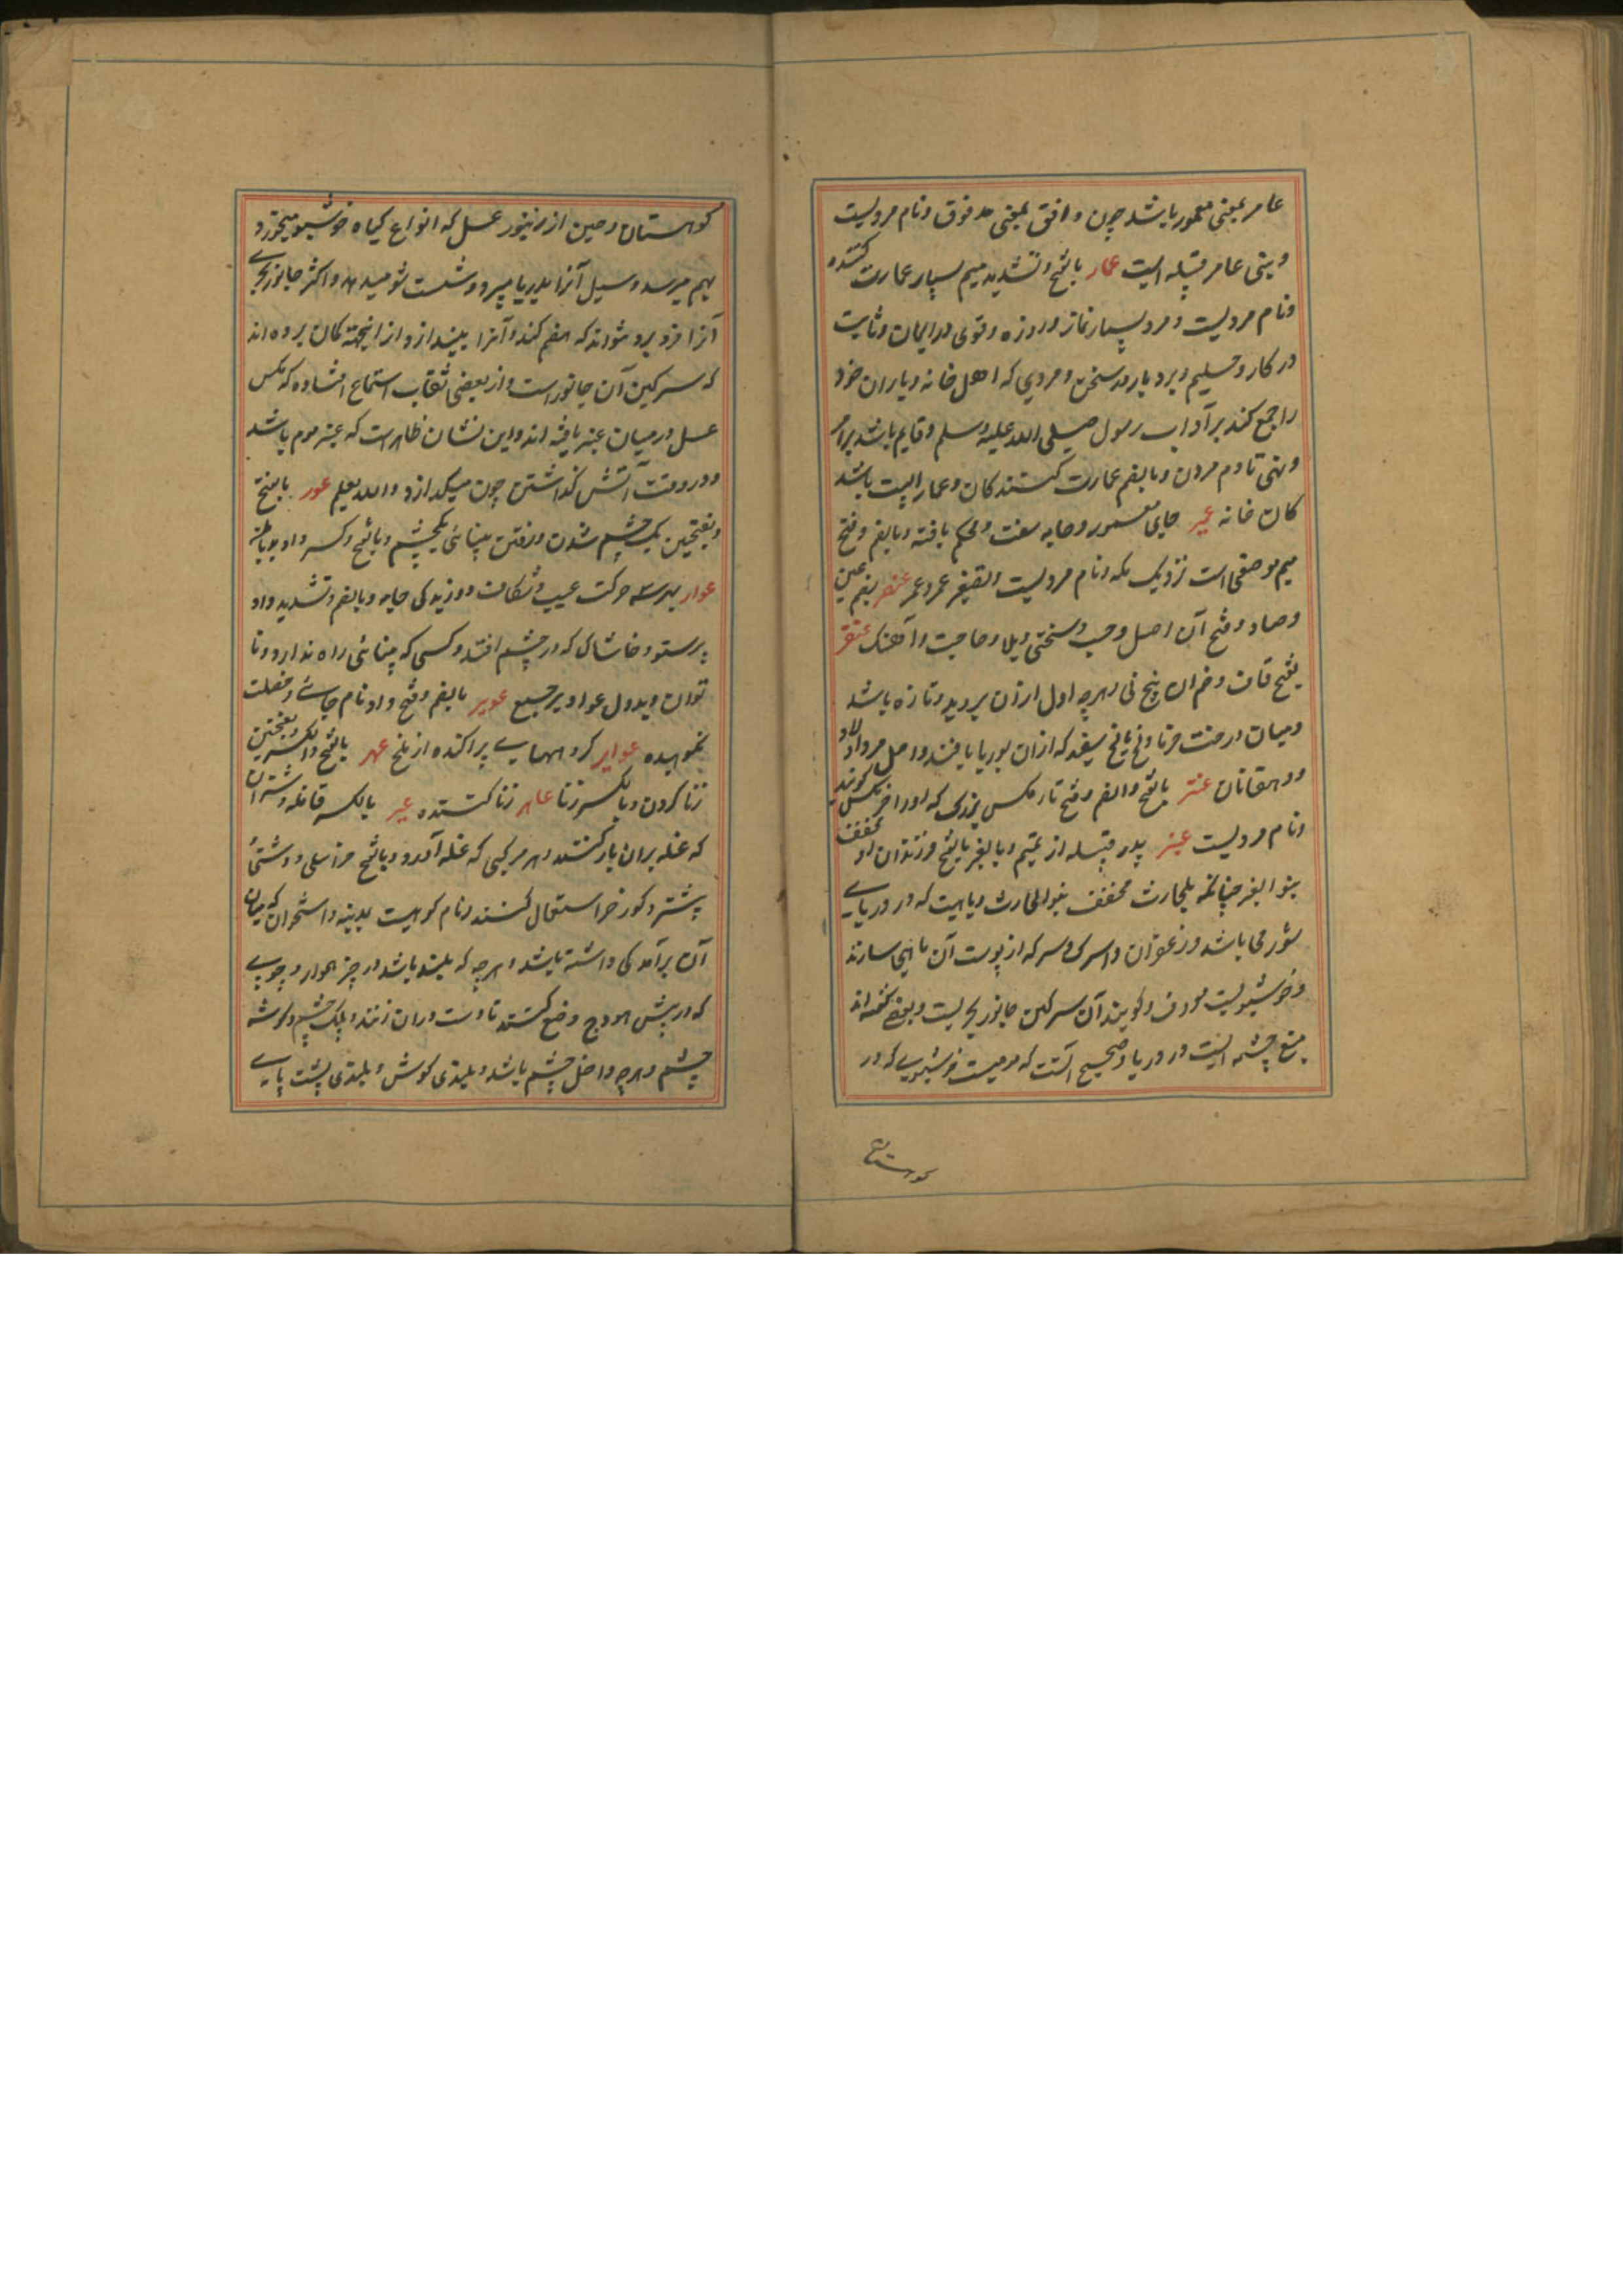 عامر بمعنی معمور باشد چون دافق بمعنی مدفوق و نام مردیست
و بنی عامر قبیله ایست عمار بالفتح و تشدید میم بسیار عمارت کننده
و نام مردیست و مرد بسیار نماز و روزه و قوی در ایمان و ثابت
در کار و حلیم و بردبار در سخن و مردی که اهل خانه و یاران خود
را جمع کند بر آداب رسول صلی الله علیه وسلم و قایم باشد بر امر
و نهی تا دم مردن و بالضم عمارت کنندکان و عمار البیت باشند
کان خانه عمیر جای معمور و جامه سفت و محکم بافته و بالضم و فتح
میم موضعی است نزدیک مکه و نام مردیست و تصغیر عمر و عمر عنصر بضم عین
و صاد و فتح آن اصل و حسب و سختی و بلا و حاجت و آهنک عنقر
بفتح قاف و ضم آن بیخ نی و هرچه اول از آن بروید و تازه باشد
و میان درخت خرما و نی سفید که از آن بوریا بافند و اصل مرد و اولاد
دهقانان عنتر بالفتح و الضم و فتح تا مکس بزرک که او را خرمکس کویند
و نام مردیست عنبر پدر قبیله از تمیم و بالعنبر بالفتح فرزندان او مخفف
بنو العنبر چنانکه بلحارث مخفف بنو الحارث و ماهیست که در دریای
شور می باشد و زعفران و اسرک و سپر که از پوست آن ماهی سازند
و خوشبویست معروف و کویند آن سرکین جانور بحریست و بعضی کفته اند
منبع چشمه ایست در دریا و صحیح آنست که مومیست خوشبوی که در
کوهستان
کوهستان و چین از زنبور عسل که انواع کیاه خوشبو میخورد
بهم میرسد و سیل آنرا بدریا میبرد و شست و شو میدهد و اکثر جانور بحری
آنرا فرو برد و نتواند که هضم کند و آنرا بیندازد و ازینجهت کمان برده اند
که سرکین آن جانور است و از بعضی ثقات استماع افتاده که مکس
عسل در میان عنبر یافته اند و این نشان ظاهر است که عنبر موم باشد
و در وقت آتش کذاشتن چون میکدازد و الله یعلم عور بالفتح
و بفتحین یک چشم شدن و رفتن بینائی یکچشم و بالفتح و کسر واو
عوار بهر سه حرکت عیب و شکاف و دریدکی جامه و بالضم و تشدید واو
پرستو و خاشاک که در چشم افتد و کسی که بینائی راه ندارد و نا
توان و بددل عواویر جمع عویر بالضم و فتح واو نام جائی و خصلت
نکوهیده عوایر کروههای پراکنده از ملخ عهر بالفتح و الکسر و بفتحتین
زنا کردن و بالکسر زنا عاهر زنا کننده عیر بالکسر قافله و شتران
که غله بران بار کنند و هر مرکبی که غله آورد و بالفتح خر اهلی و وحشی
پشتر و کورخر استعمال کنند و نام کوهیست بمدینه و استخوان که میان
آن برآمدکی داشته باشد و هرچه که بلند باشد در چیز هموار و چوب
که در پیش هودج وضع کنند تا دست در آن زنند و پلک چشم و کوشه
چشم و هرچه داخل چشم باشد و بلندی کوش و بلندی پشت پای